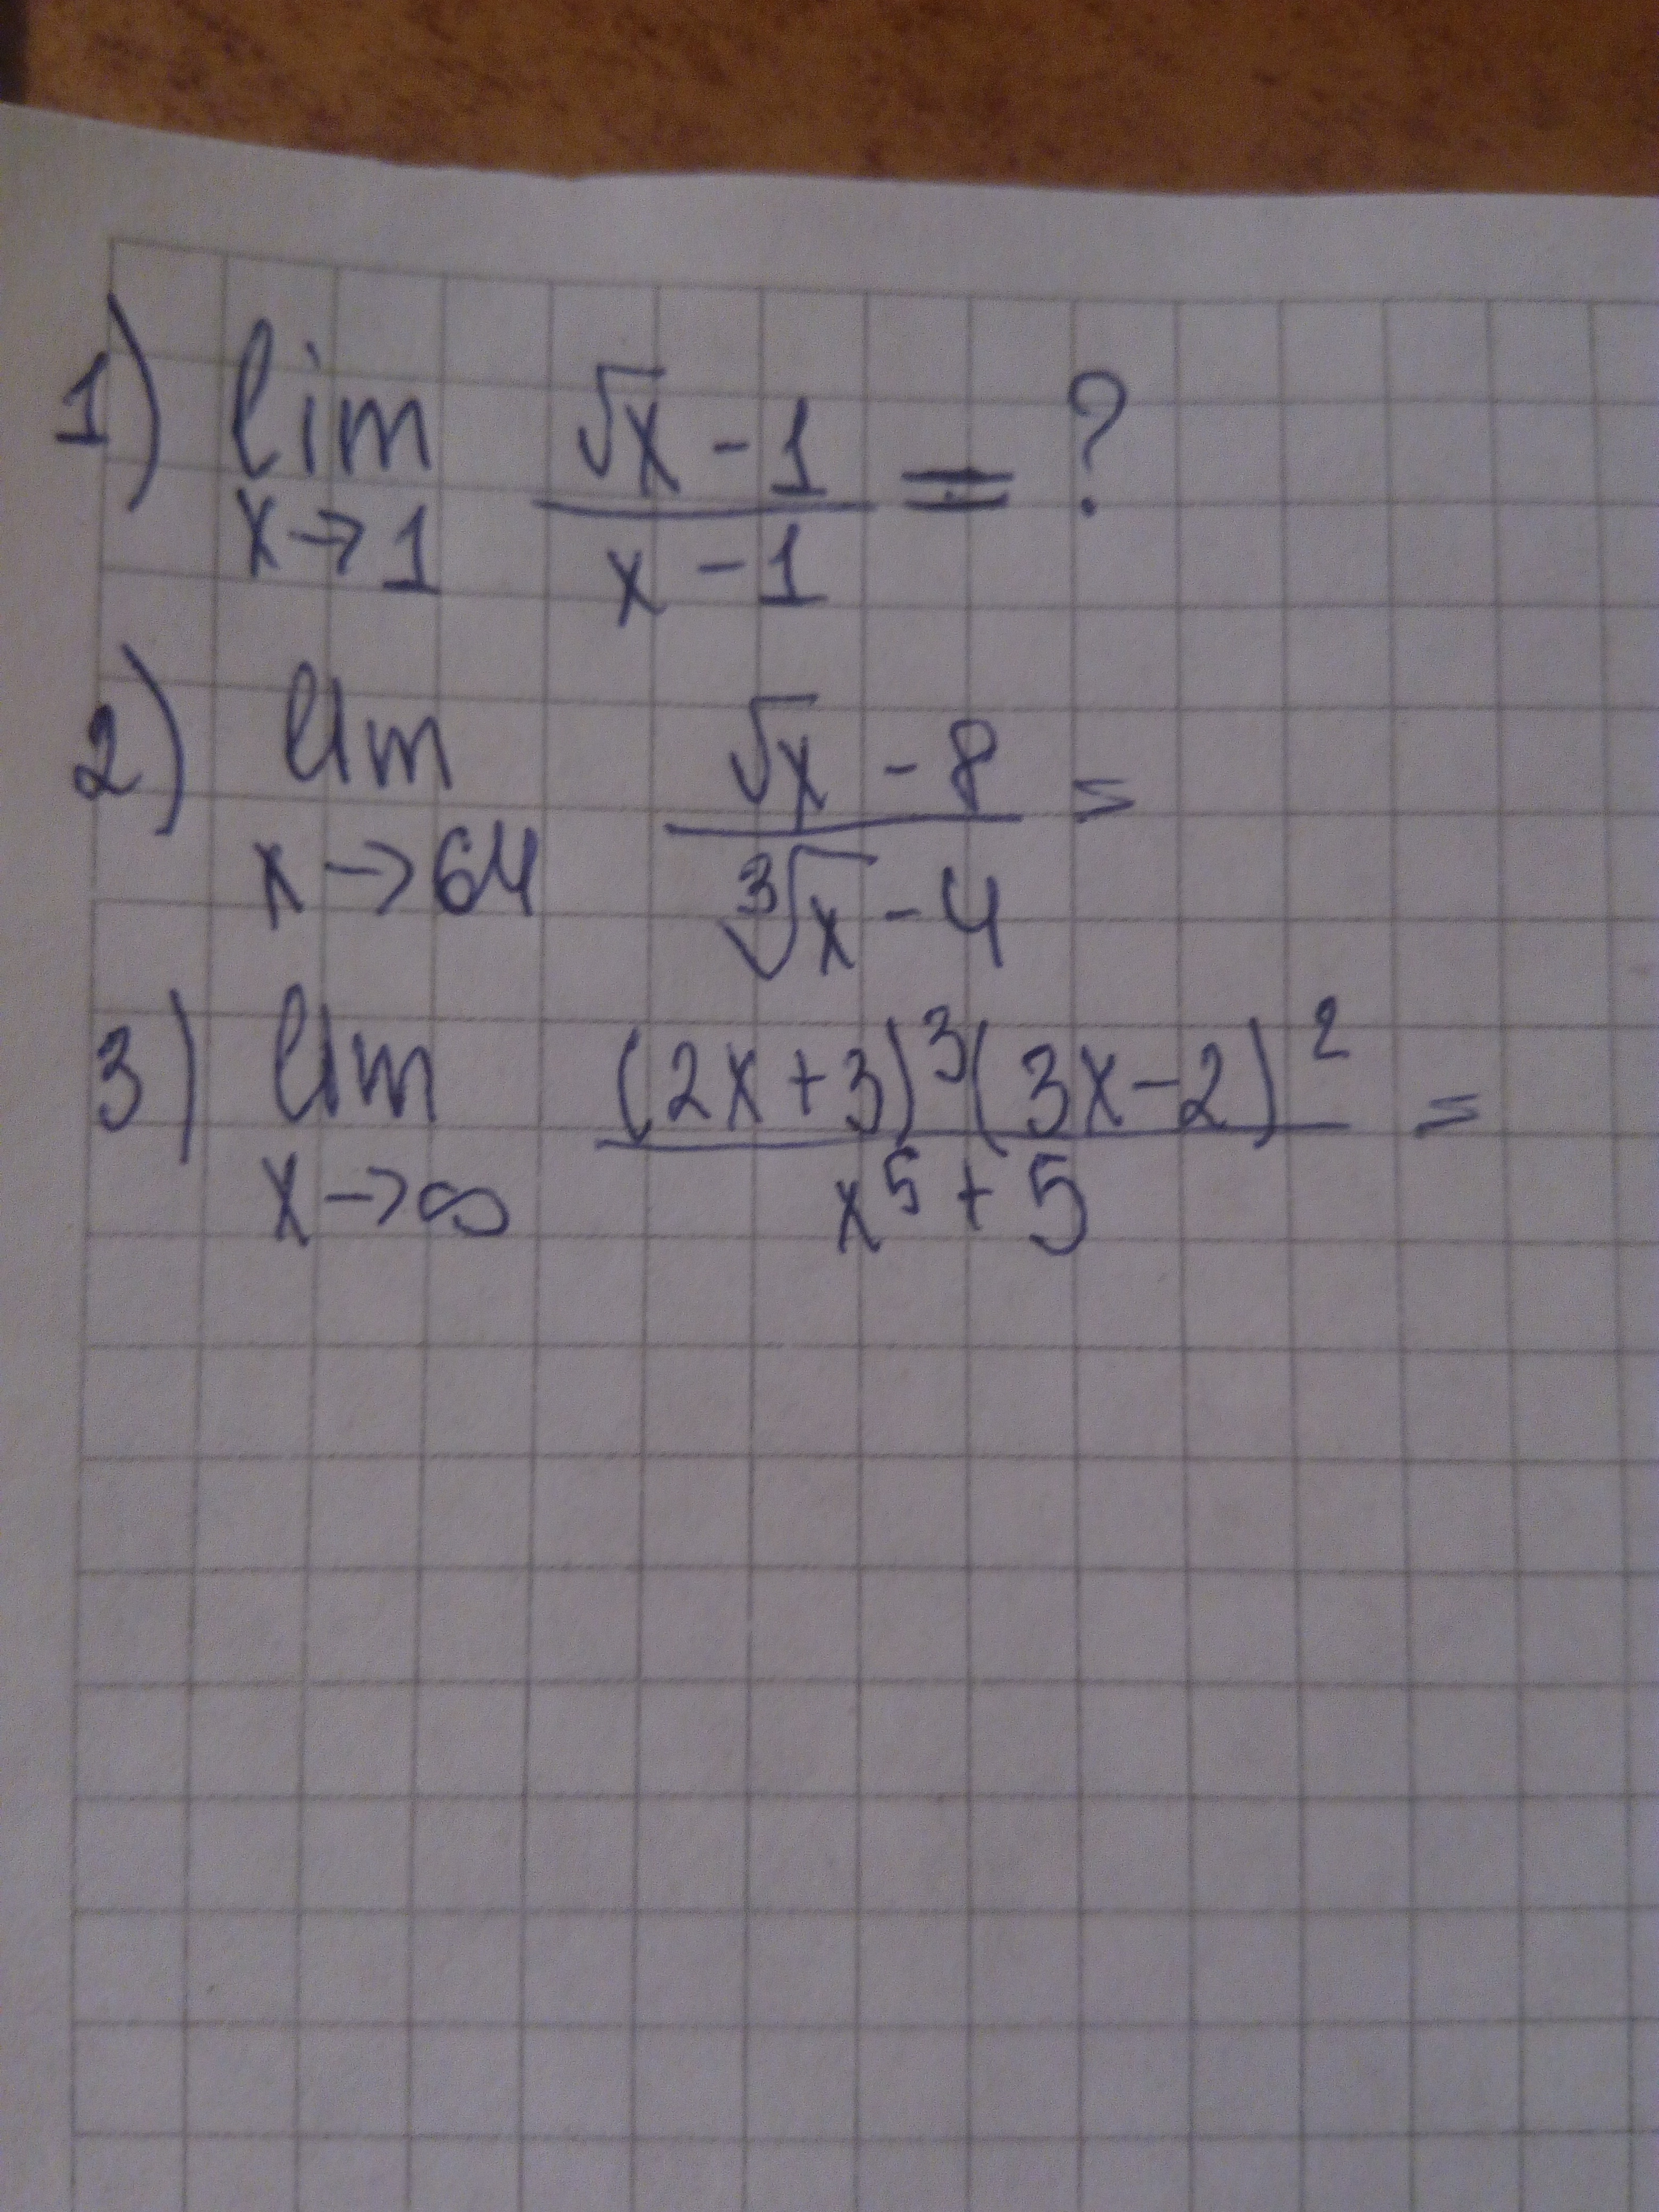 1) lim x→1 (√x - 1)/(x - 1) = ?
2) lim x→64 (√x - 8)/(∛x - 4) =
3) lim x→∞ ((2x+3)³(3x-2)²)/(x⁵ + 5) =